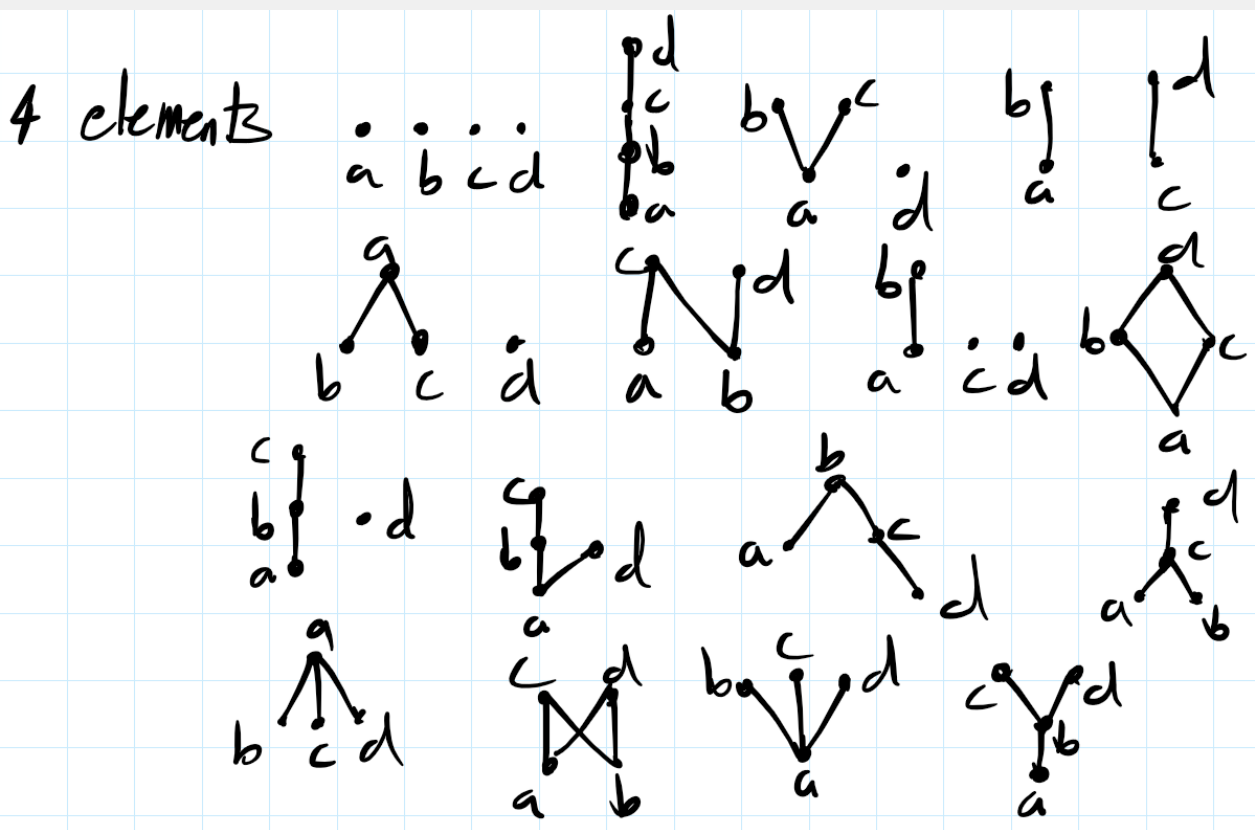 4 elements
a b c d
d
c
b
a
b c
a d
b d
a c
a
b c d
c d
a b
b
a c d
d
b c
a
c
b d
a
c
b d
a
b
a c
d
d
c
a b
a
b c d
c d
a b
b c d
a
c d
b
a